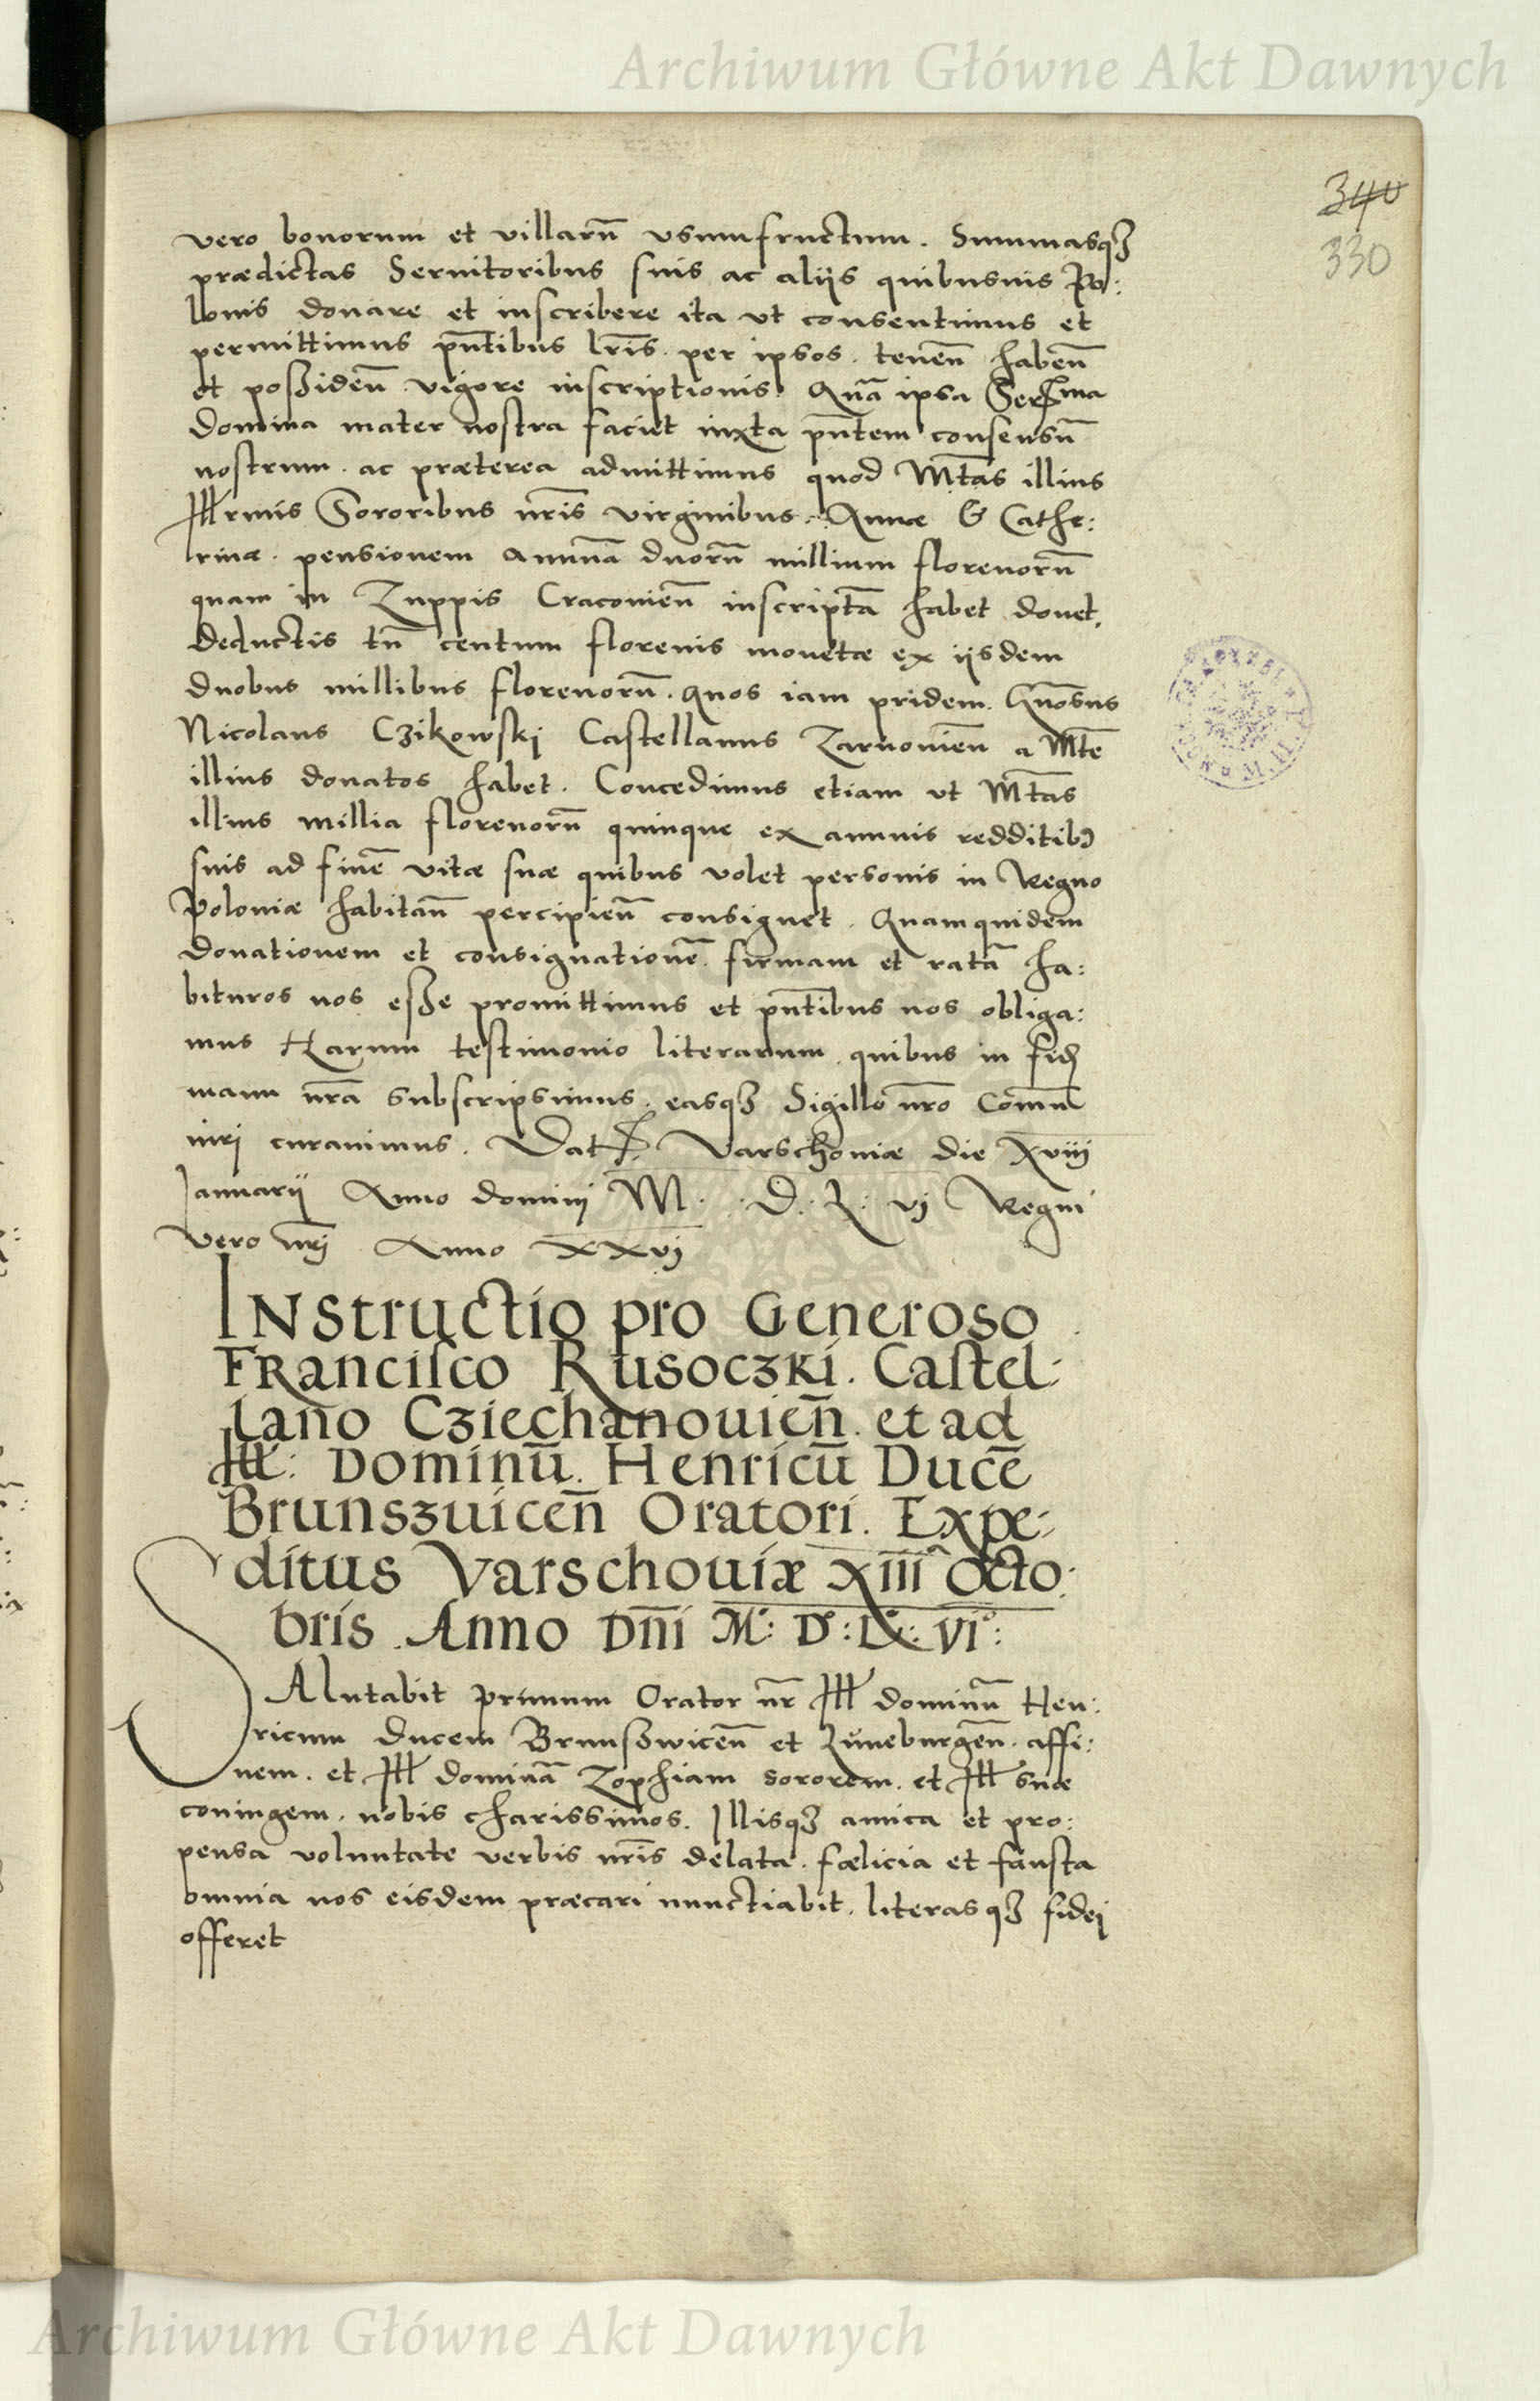 Archiwum Główne Akt Dawnych
340
330
vero bonorum et villarū vsumfructum. Summasqꝫ
prædictas Seruitoribus suis ac aliis quibusuis Po:
lonis donare et inscribere ita vt consentimus et
permittimus pn̄tibus lr̄is. per ipsos. tenen̄ haben̄
et possiden̄ vigore inscriptionis. Quā ipsa Serma
Domina mater nostra faciet iuxta pn̄tem consensū
nostrum. ac præterea admittimus quod Mt̄as illius
Illrmis Sororibus nr̄is virginibus. Annæ & Cathe:
rinæ. pensionem annuā duorū millium florenorū
quam in Zuppis Cracouien̄ inscriptā habet donet,
Deductis tn̄ centum florenis monetæ ex iisdem
duobus millibus florenorū. quos iam pridem. Gn̄osus
Nicolaus Czikowskj Castellanus Zarnouien̄ a Mt̄e
illius donatos habet. Concedimus etiam vt Mt̄as
illius millia florenorū quinque ex annuis redditibꝰ
suis ad finē vitæ suæ quibus volet personis in Regno
Poloniæ habitan̄ percipien̄ consignet. Quamquidem
donationem et consignationē. firmam et ratā ha:
bituros nos esse promittimus et pn̄tibus nos obliga:
mus Harum testimonio literarum quibus in fidē
manu nr̄a subscripsimus. easqꝫ Sigillo nr̄o Comu
nirj curauimus. Dat Varschouiæ die xviij
Januarij Anno dominj M. D. L. vj Regni
vero nr̄j Anno XXvj
INstructio pro Generoso
Francisco Rusoczki. Castel:
lano Cziechanouien̄. et ad
Ill: Dominū. Henricū Ducē
Brunszuicen̄ Oratori. Expe:
ditus Varschouiæ XIII Octo:
bris. Anno Dn̄i M: D: L: VI:
SAlutabit primum Orator nr̄ Ill dominū Hen:
ricum ducem Brunszwicen̄ et Luneburgen̄. affi:
nem. et Ill dominā Zophiam sororem. et Ill suæ
coniugem. nobis charissimos. Illisqꝫ amica et pro:
pensa voluntate verbis nr̄is delata. fœlicia et fausta
omnia nos eisdem præcari nunctiabit. literasqꝫ fidej
offeret
Archiwum Główne Akt Dawnych